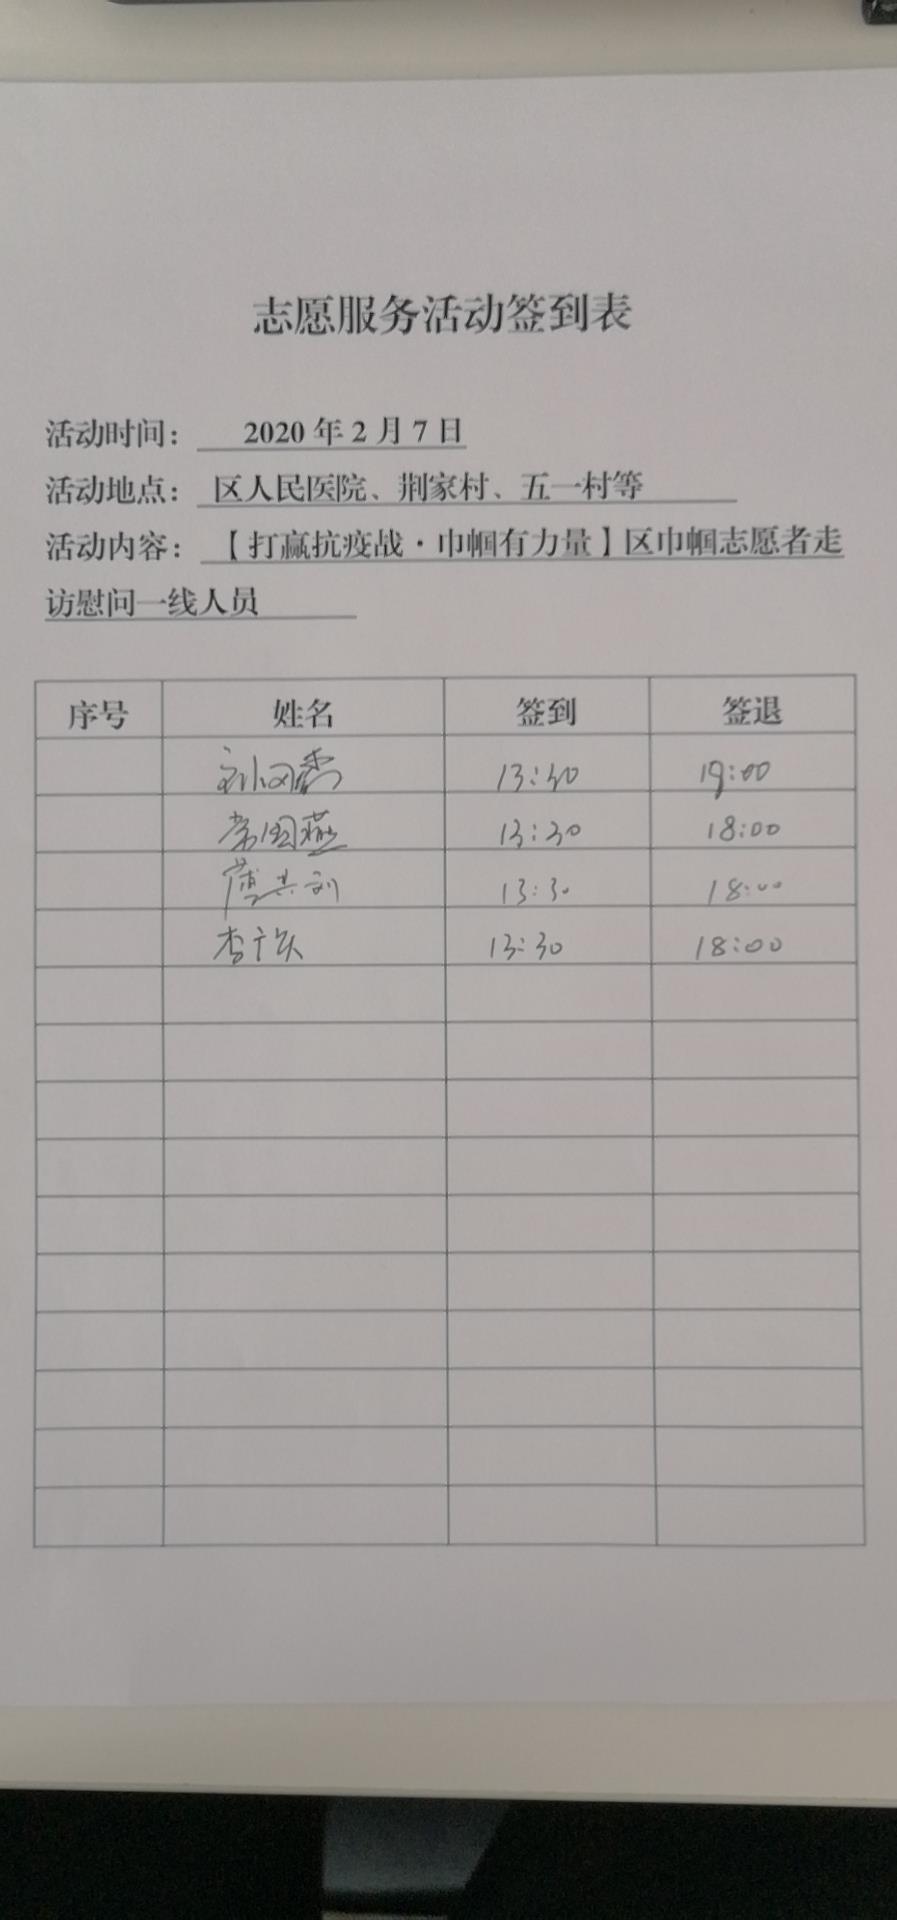 志愿服务活动签到表
活动时间： 2020 年 2 月 7 日
活动地点： 区人民医院、荆家村、五一村等
活动内容： 【打赢抗疫战·巾帼有力量】区巾帼志愿者走
访慰问一线人员
序号 姓名 签到 签退
13:30 19:00
常国燕 13:30 18:00
13:30 18:00
13:30 18:00